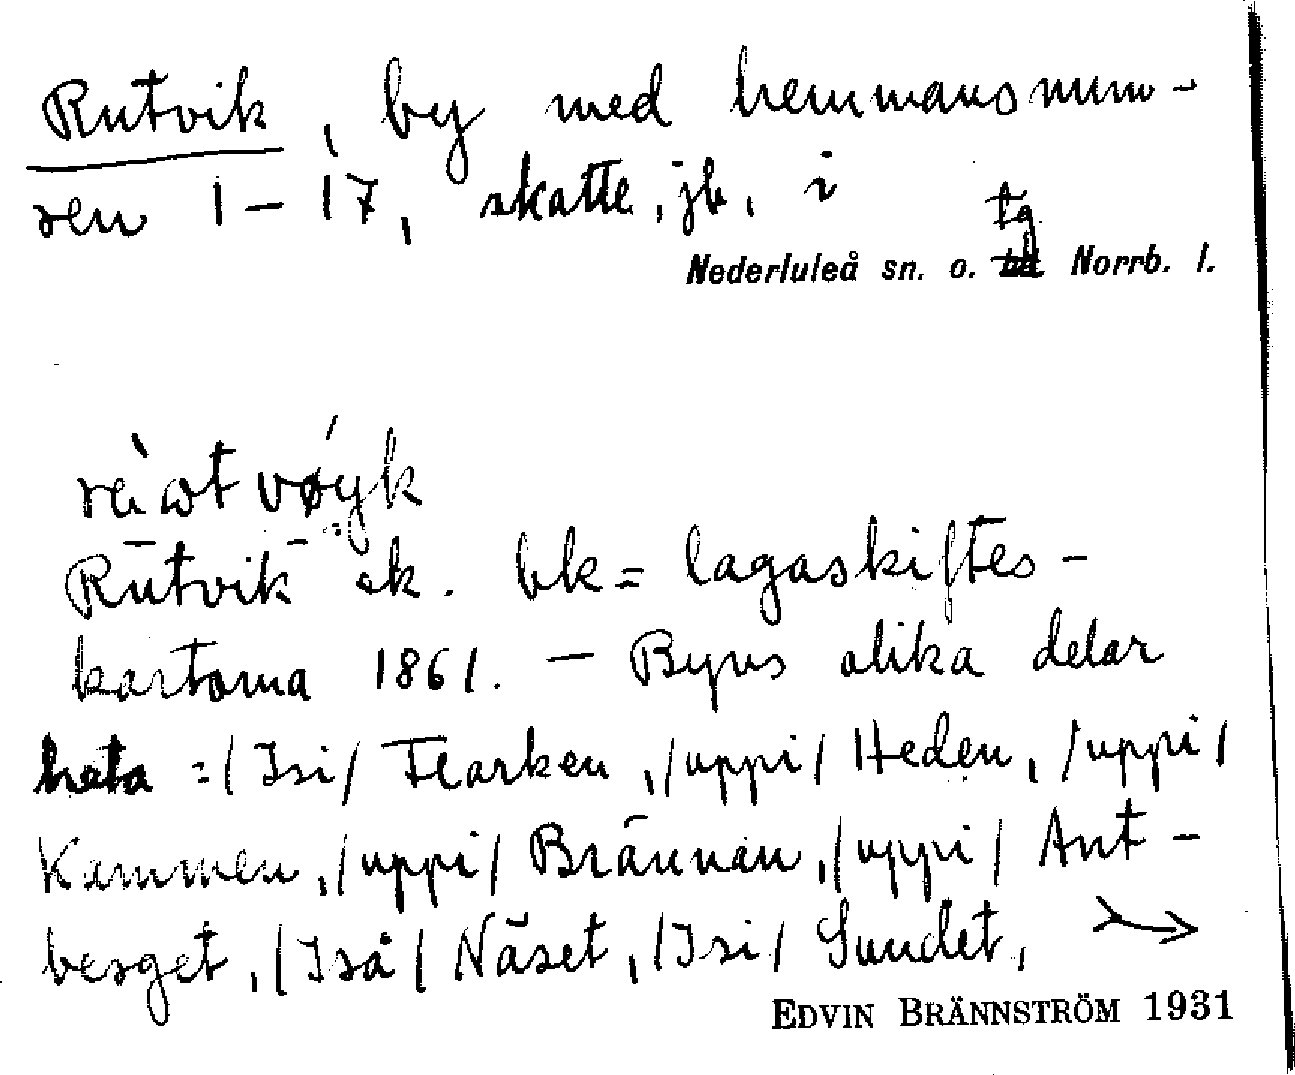 Rutvik, by med hemmansnum-
ren 1-17, skatte, jb, i
tg
Nederluleå sn. o. Norrb. l.
Rūtvik ek. bk = lagaskiftes-
kartorna 1861. — Byns olika delar
heta =/Isi/ Flarken, /uppi/ Heden, /uppi/
Kammen, /uppi/ Brännan, /uppi/ Ant-
berget, /Iså/ Näset, /Isi/ Sundet, →
EDVIN BRÄNNSTRÖM 1931